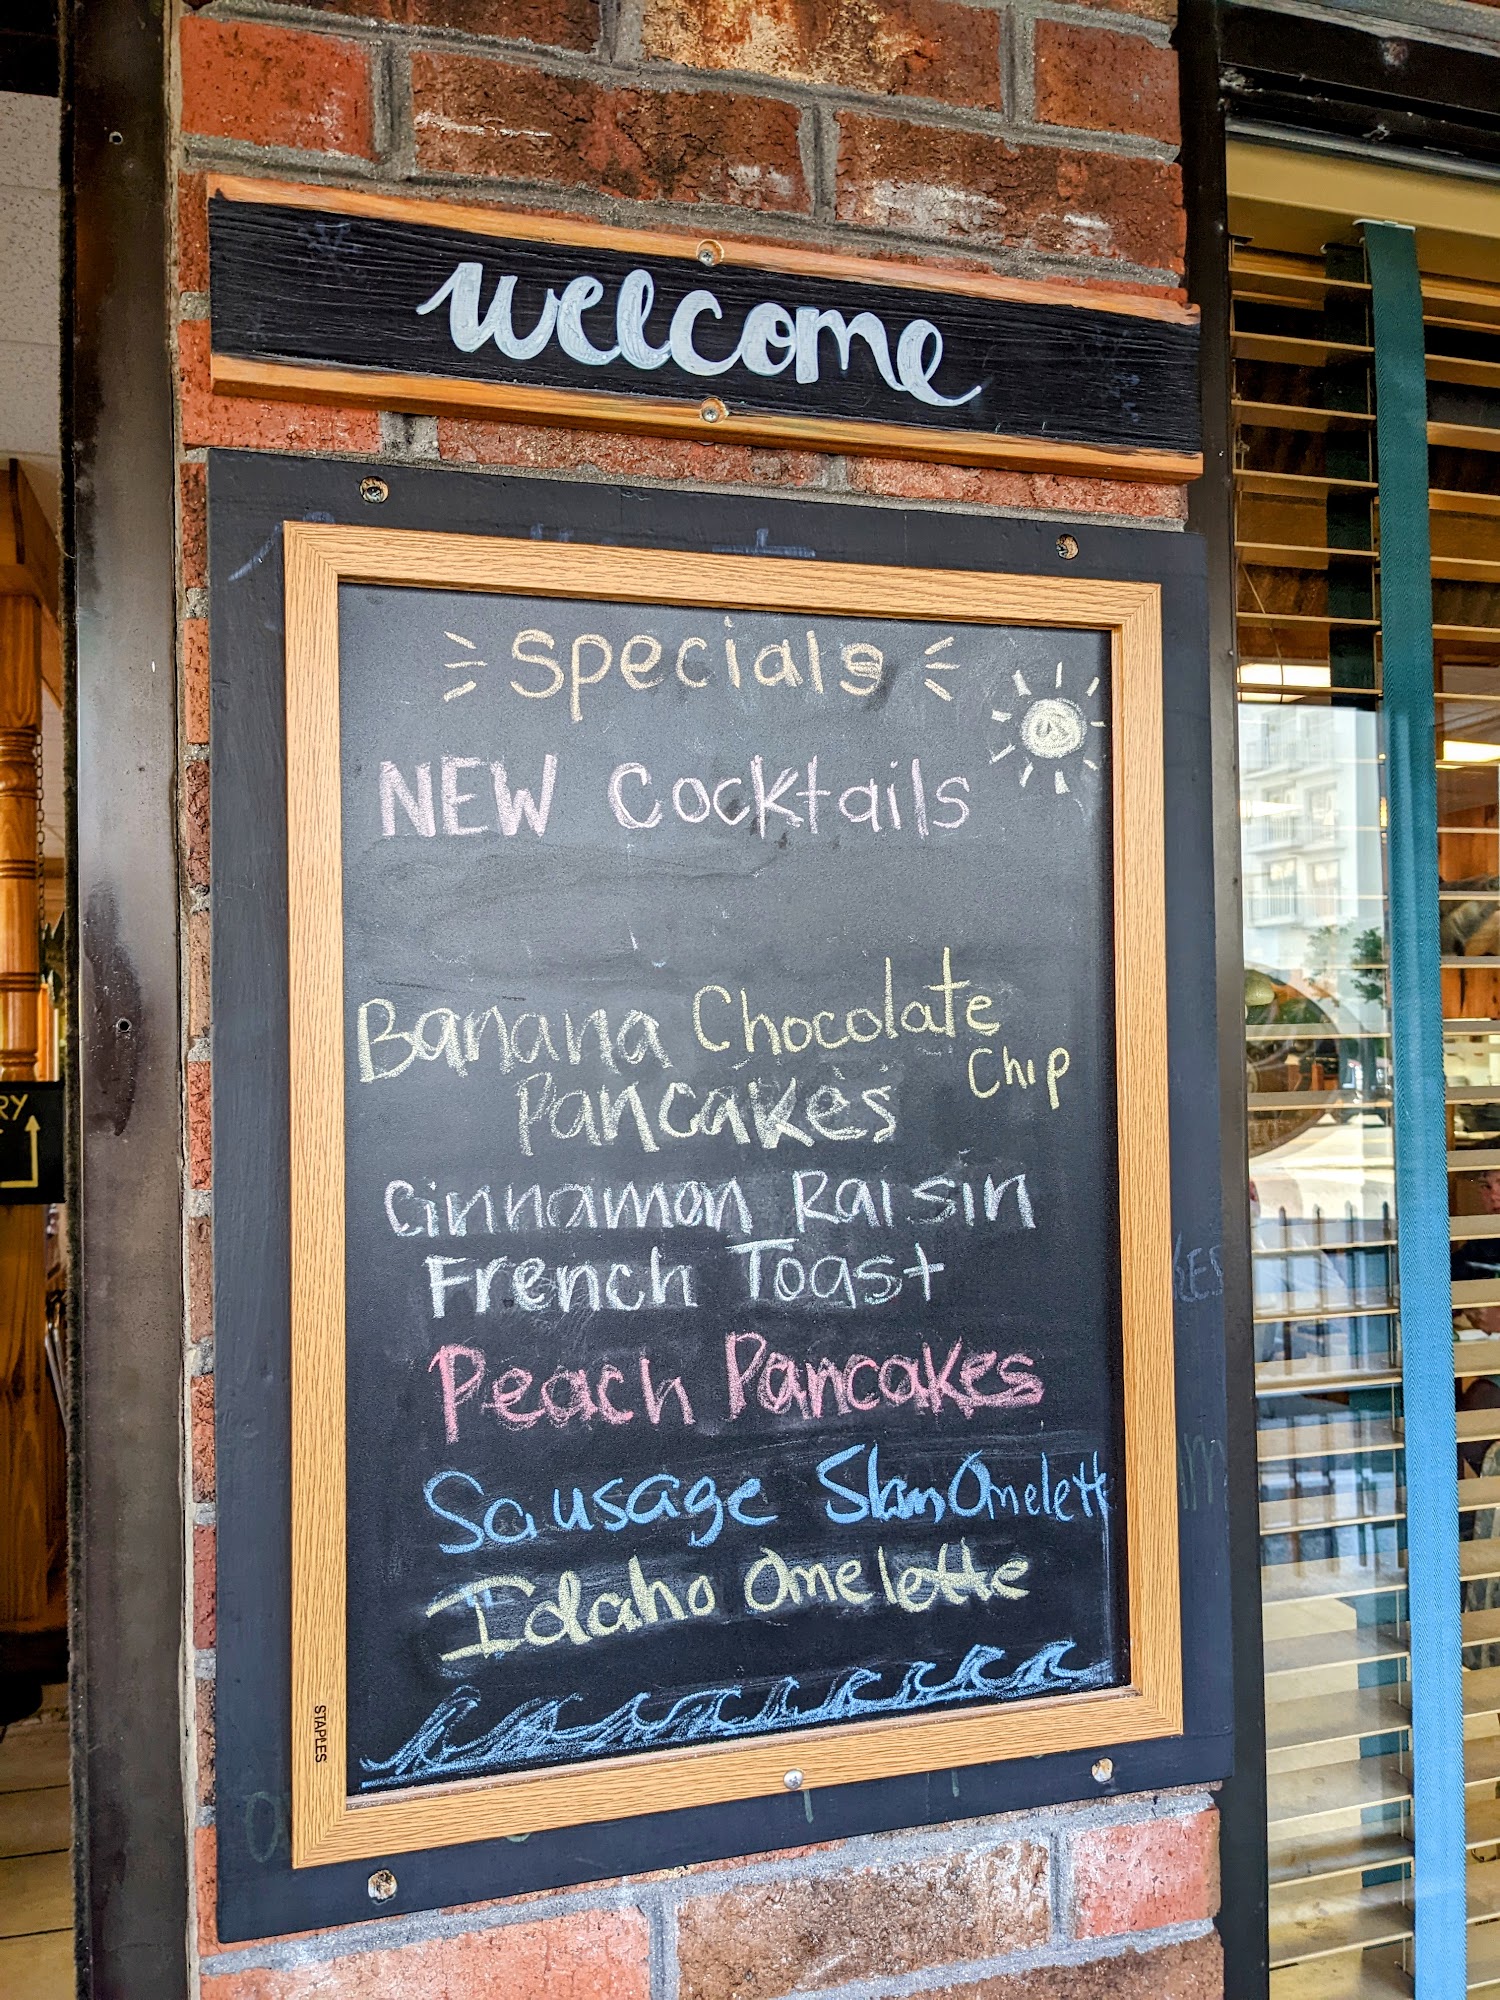 welcome
Specials
NEW Cocktails
Banana Chocolate
Chip
Pancakes
Cinnamon Raisin
French Toast
Peach Pancakes
Sausage Slam Omelette
Idaho Omelette
STAPLES
RY